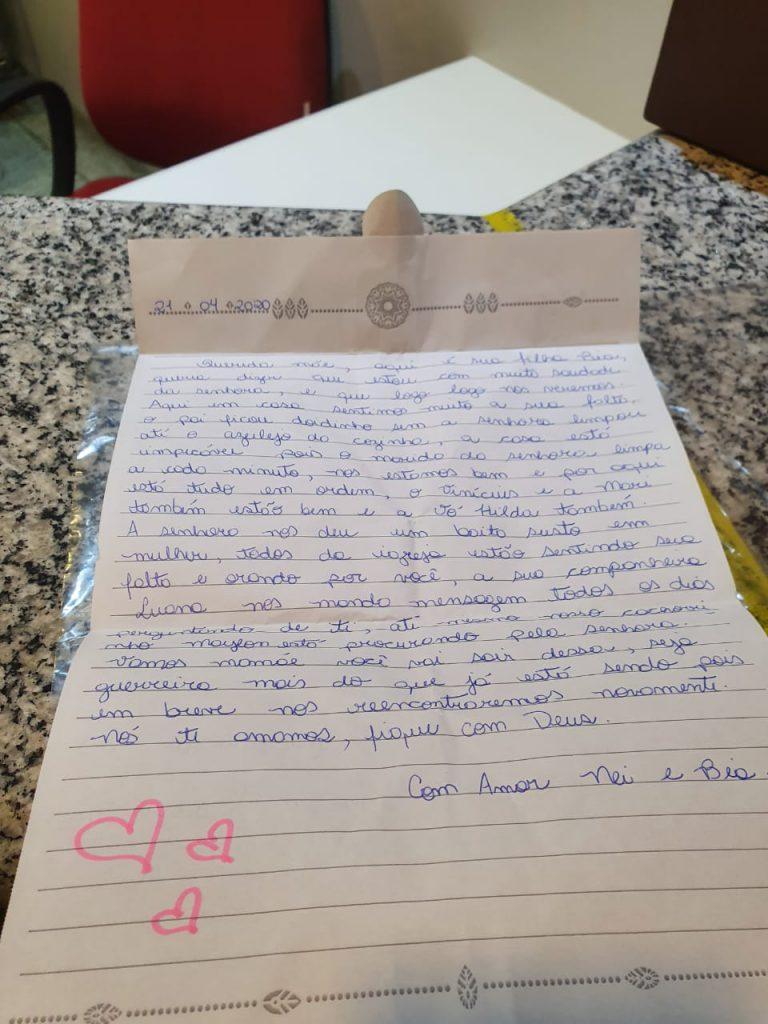 21 04 2020
Querida mãe, aqui é sua filha Bia,
queria dizer que estou com muito saudade
da senhora, e que logo logo nos veremos.
Aqui em casa sentimos muito a sua falta,
o pai ficou doidinho sem a senhora limpou
até o azulejo da cozinha, a casa está
impicável pois o marido da senhora limpa
a cada minuto, nos estamos bem e por aqui
está tudo em ordem, o Vinicius e a Mari
também estão bem e a Vó Hilda também.
A senhora nos deu um baita susto em
mulher, todos da igreja estão sentindo sua
falta e orando por você, a sua companheira
Luana nos manda mensagem todos os dias
perguntando de ti, até mesmo nosso cachorri
nho Maylon está procurando pela senhora.
Vamos mamãe você vai sair dessa, seja
guerreira mais do que já está sendo pois
em breve nos reencontraremos novamente.
Nós ti amamos, fique com Deus.
Com Amor Nei e Bia.